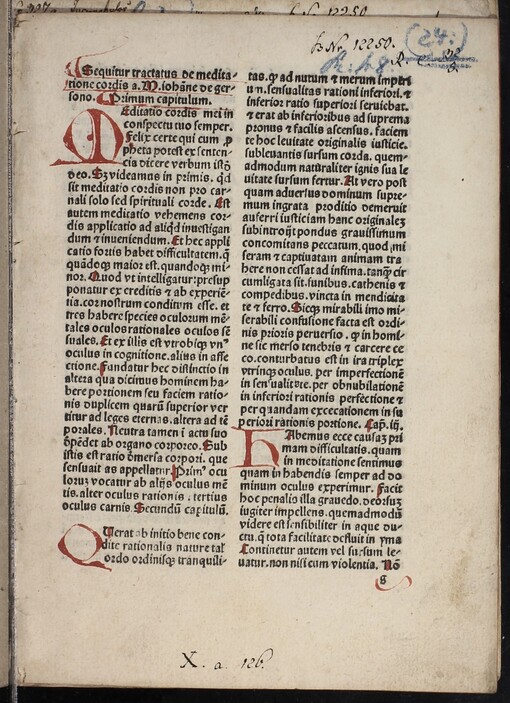 h. Nr. 12250.
(24.)
Sequitur tractatus de medita-
tione cordis a. M. iohāne de ger-
sono. Primum capitulum.
MEditatio cordis mei in
conspectu tuo semper.
Felix certe qui cum ꝓ
pheta potest ex senten-
cia dicere verbum istō
deo. Sz videamus in primis. qd̄
sit meditatio cordis non pro car-
nali solo sed spirituali corde. Est
autem meditatio vehemens cor-
dis applicatio ad aliqd̄ inuestigan
dum ⁊ inueniendum. Et hec appli
catio fortis habet difficultatem. q̄
quādoqꝫ maior est. quandoqꝫ mi-
nor. Quod vt intelligatur: presup
ponatur ex creditis ⁊ ab experiē-
tia. cor nostrum conditum esse. et
tres habere species oculorum mē-
tales oculos rationales oculos sē
suales. Et ex illis est vtrobiqꝫ vnꝰ
oculus in cognitione. alius in affe
ctione. Fundatur hec distinctio in
altera qua dicimus hominem ha-
bere portionem seu faciem ratio-
nis duplicem quarū superior ver
titur ad leges eternas. altera ad tē
porales. Neutra tamen ī actu suo
dꝫpēdet ab organo corporeo. Sub
istis est ratio dꝫmersa corpori. que
sensualitas appellatur. Primꝰ ocu
lorūꝫ vocatur ab alijs oculus mē
tis. alter oculus rationis. tertius
oculus carnis. Secundū capitulū.
QUerat ab initio bene con-
dite rationalis nature tal
ordo ordinisqꝫ tranquili-
tas. ꝙ ad nutum ⁊ merum imperi
um. sensualitas rationi inferiori. ⁊
inferior ratio superiori seruiebat.
⁊ erat ab inferioribus ad suprema
pronus ⁊ facilis ascensus. faciem
te hoc leuitate originalis iusticie.
subleuantis sursum corda. quem-
admodum naturaliter ignis sua le
uitate sursum fertur. At vero post
quam aduersus dominum supre-
mum ingrata proditio demeruit
auferri iusticiam hanc originalez
subintroijt pondus grauissimum
concomitans peccatum. quod mi
seram ⁊ captiuatam animam tra
here non cessat ad infima. tanqꝫ cir
cumligata sit. funibus. cathenis ⁊
compedibus. vincta in mendicita
te ⁊ ferro. Sicqꝫ mirabili imo mi-
serabili confusione facta est ordi-
nis prioris peruersio. ꝙ in homi-
ne sic merso tenebris ⁊ carcere ce
co. conturbatus est in ira triplex
vtrinqꝫ oculus. per imperfectionē
in sensualitate. per obnubilationē
in inferiori rationis perfectiōe ⁊
per quandam excecationem in su
periori rationis portione. Cap. iij.
HAbemus ecce causaꝫ pri
mam difficultatis. quam
in meditatione sentimus
quam in habendis semper ad do
minum oculus experimur. Facit
hoc penalis illa grauedo. deorsuꝫ
iugiter impellens. quemadmodū
videre est sensibiliter in aque du-
ctu. q̄ tota facilitate defluit in yma
Continetur autem vel sursum le-
uatur. non nisi cum violentia. Nō
g
X. a. 126.